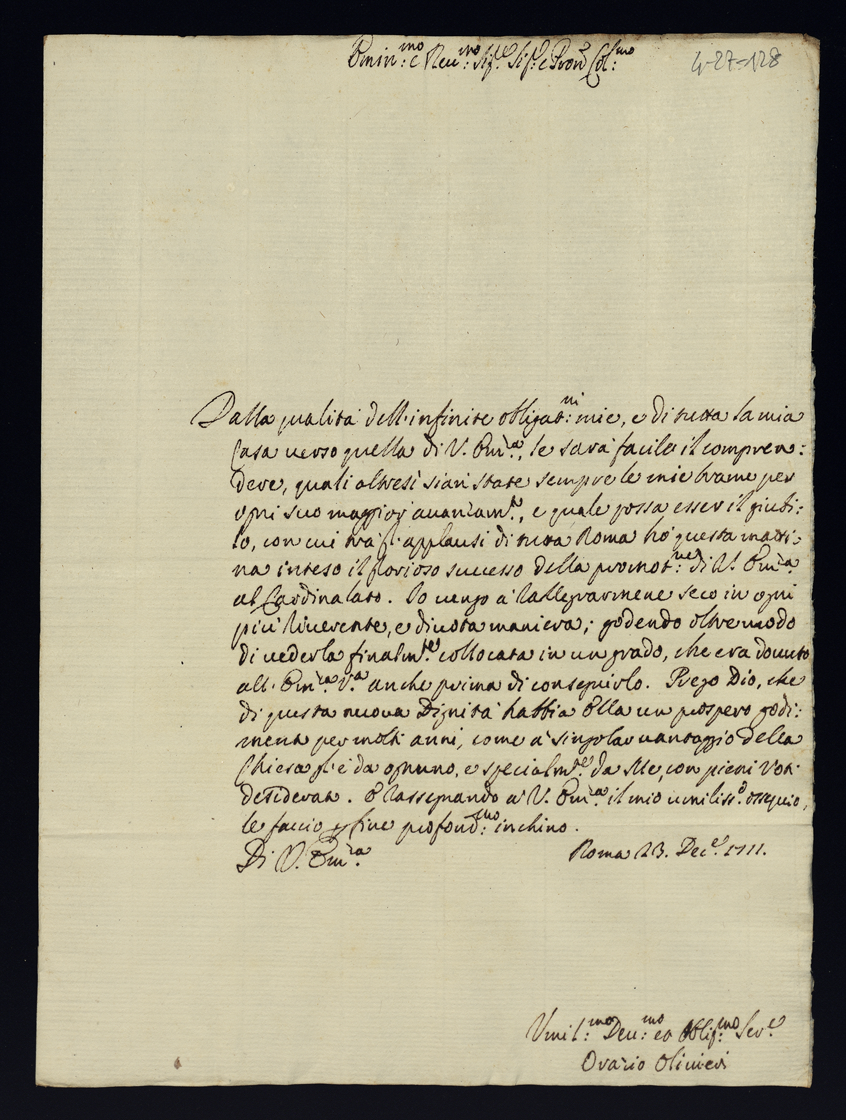 Emin:mo e Rev:mo Sig.e Sig.e e Pron.e Col:mo
4-27-128
Dalla qualità dell'infinite obligat:ni mie, e di tutta la mia
Casa verso quella di V. Em:za, le sarà facile il compren:
dere, quali altresi sian state sempre le mie brame per
ogni suo maggior avanzam.to, e quale possa esser il giubi:
lo, con cui trà gl'applausi di tutta Roma hò questa matti:
na inteso il glorioso successo della promot:ne di V. Em:za
al Cardinalato. Io vengo à rallegrarmene seco in ogni
più riverente, e divota maniera; godendo oltre modo
di vederla finalm:te collocata in un grado, che era dovuto
all'Em:za V.a anche prima di conseguirlo. Prego Dio, che
di questa nuova Dignità habbia Ella un prospero godi:
mento per molti anni, come à singolar vantaggio della
Chiesa gl'è da ognuno, e specialm:te da Me, con pieni Voti
desiderato. E rassegnando à V. Em:za il mio umiliss.o ossequio,
le faccio per fine profond:mo inchino.
Di V. Em:za
Roma 23. Dec.e 1711.
Umil:mo Dev:mo et Oblig:mo Ser.e
Orazio Olivieri